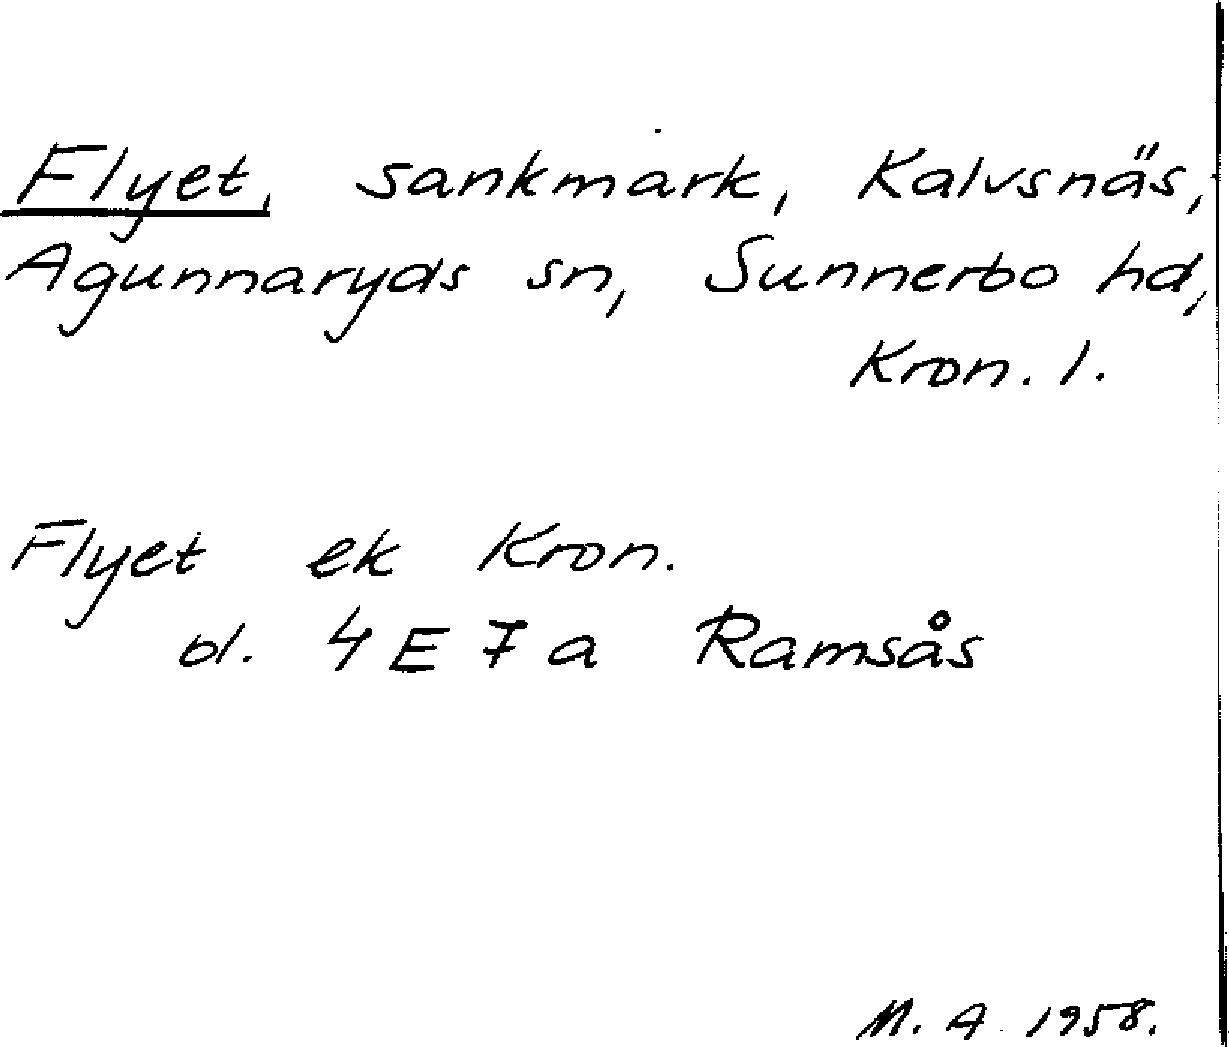 Flyet, sankmark, Kalvsnäs,
Agunnaryds sn, Sunnerbo hd,
Kron. l.
Flyet ek Kron.
bl. 4 E 7 a Ramsås
M. A. 1958.